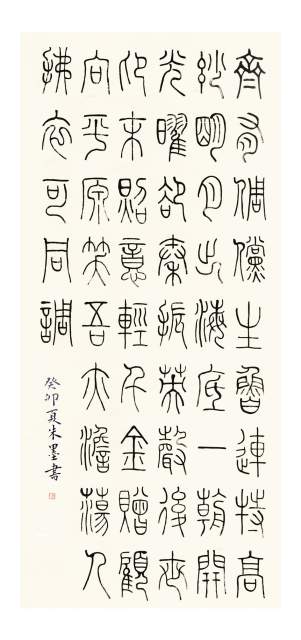 齊有倜儻生魯連特高
妙明月出海底一朝開
光曜卻秦振英聲後世
仰末照意輕千金贈顧
向平原笑吾亦澹蕩人
拂衣可同調
癸卯夏墨書